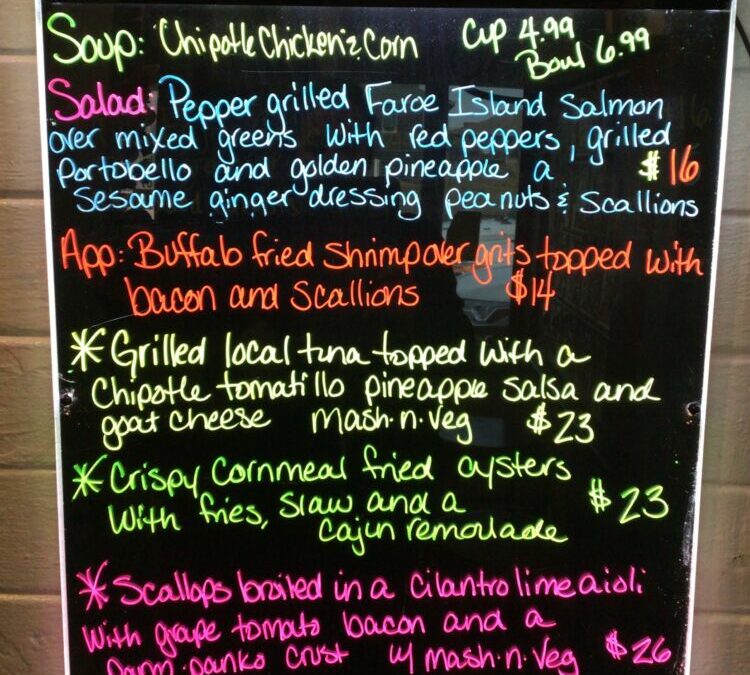 Soup: Chipotle Chicken & Corn Cup 4.99
Bowl 6.99
Salad: Pepper grilled Faroe Island Salmon
over mixed greens with red peppers, grilled
Portobello and golden pineapple a $16
Sesame ginger dressing peanuts & scallions
App: Buffalo fried shrimp over grits topped with
bacon and scallions $14
*Grilled local tuna topped with a
Chipotle tomatillo pineapple salsa and
goat cheese mash·n·veg $23
*Crispy Cornmeal fried oysters
with fries, slaw and a $23
cajun remoulade
*Scallops broiled in a cilantro lime aioli
with grape tomato bacon and a
parm·panko crust w/ mash·n·veg $26